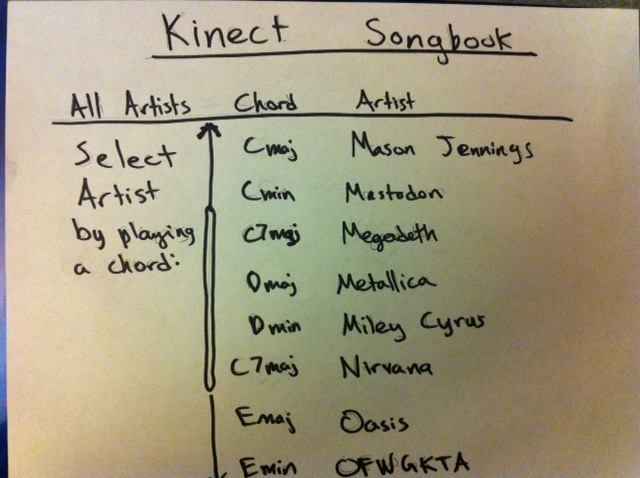 Kinect Songbook
All Artists Chord Artist
Select Artist by playing a chord:
Cmaj Mason Jennings
Cmin Mastodon
C7maj Megadeth
Dmaj Metallica
Dmin Miley Cyrus
C7maj Nirvana
Emaj Oasis
Emin OFWGKTA